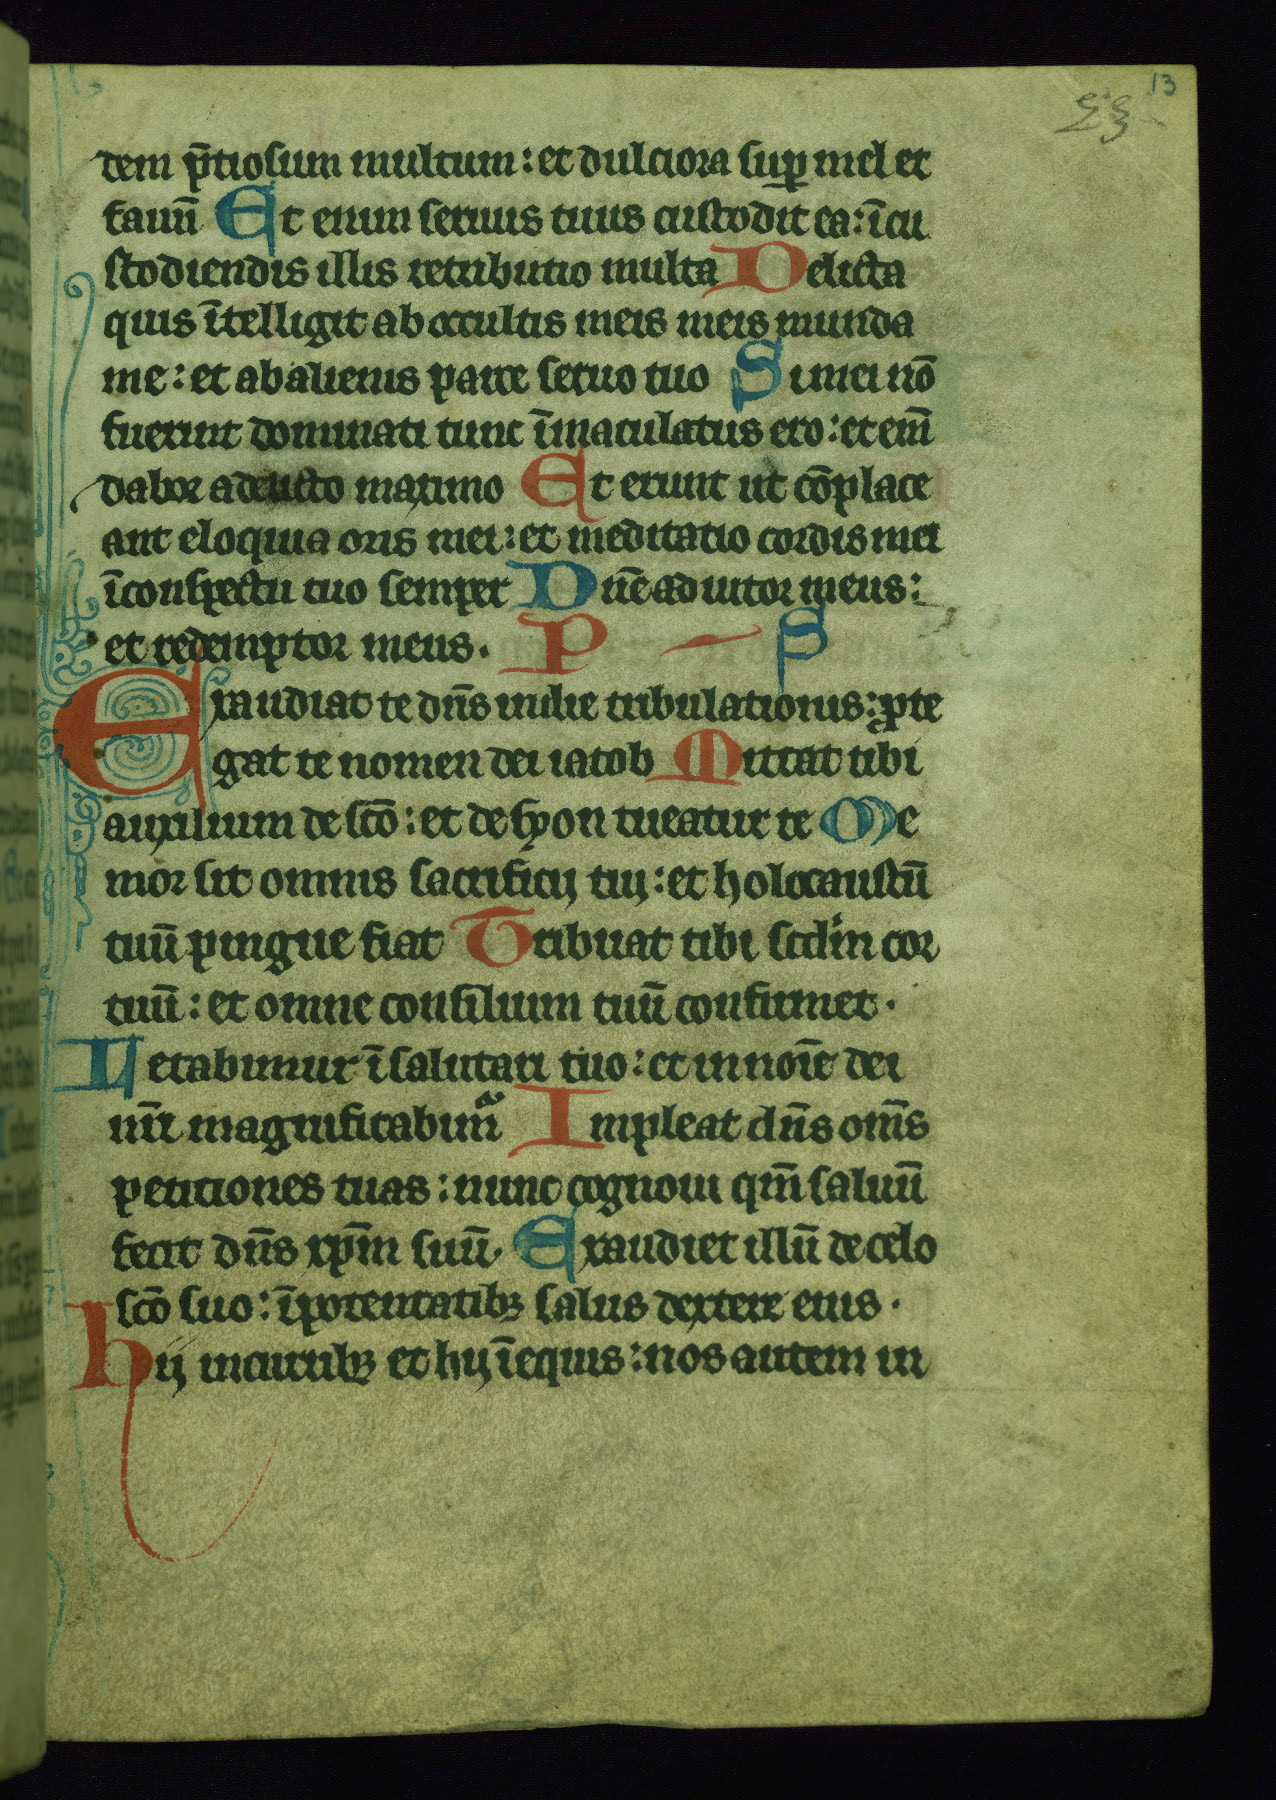 13
dem p̄tiosum multum : et dulciora suꝑ mel et
fauū Et enim seruus tuus custodit ea : ī cu
stodiendis illis retributio multa Delicta
quis ītelligit ab occultis meis meis munda
me : et ab alienis parce seruo tuo Si mei nō
fuerint dominati tunc īmaculatus ero : et em̄
dabor a delicto maximo Et erunt ut cōplace
ant eloquia oris mei : et meditatio cordis mei
ī conspectu tuo semper Dn̄e adiutor meus :
et redemptor meus . P S
Exaudiat te dn̄s in die tribulationis : ꝓte
gat te nomen dei iacob Mittat tibi
auxilium de sc̄o : et de syon tueatur te Me
mor sit omnis sacrificij tij : et holocaustū
tuū pingue fiat Tribuat tibi scdm̄ cor
tuū : et omne consilium tuū confirmet .
Letabimur ī salutari tuo : et in noīe dei
nr̄i magnificabimͬ Impleat dn̄s om̄s
petitiones tuas : nunc cognoui qm̄ saluū
fecit dn̄s xp̄m suū . Exaudiet illū de celo
sc̄o suo : ī potentatibꝫ salus dextere eius .
hij in curribꝫ et hij ī equis : nos autem in